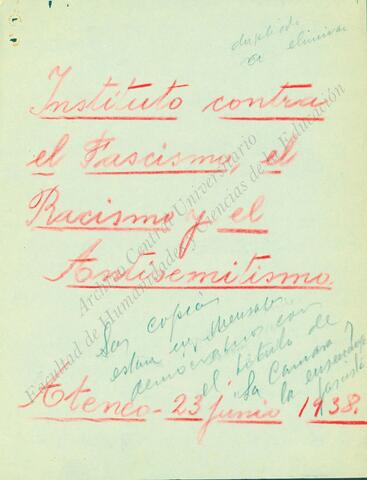 duplicado
a eliminar
Instituto contra
el Fascismo, el
Racismo y el
Antisemitismo.
Las copias
estan en
democratico con
el título de
"La Camara y
la enseñanza
fascista
Ateneo - 23 junio 1938.
Archivo Central Universitario
Facultad de Humanidades y Ciencias de la Educación